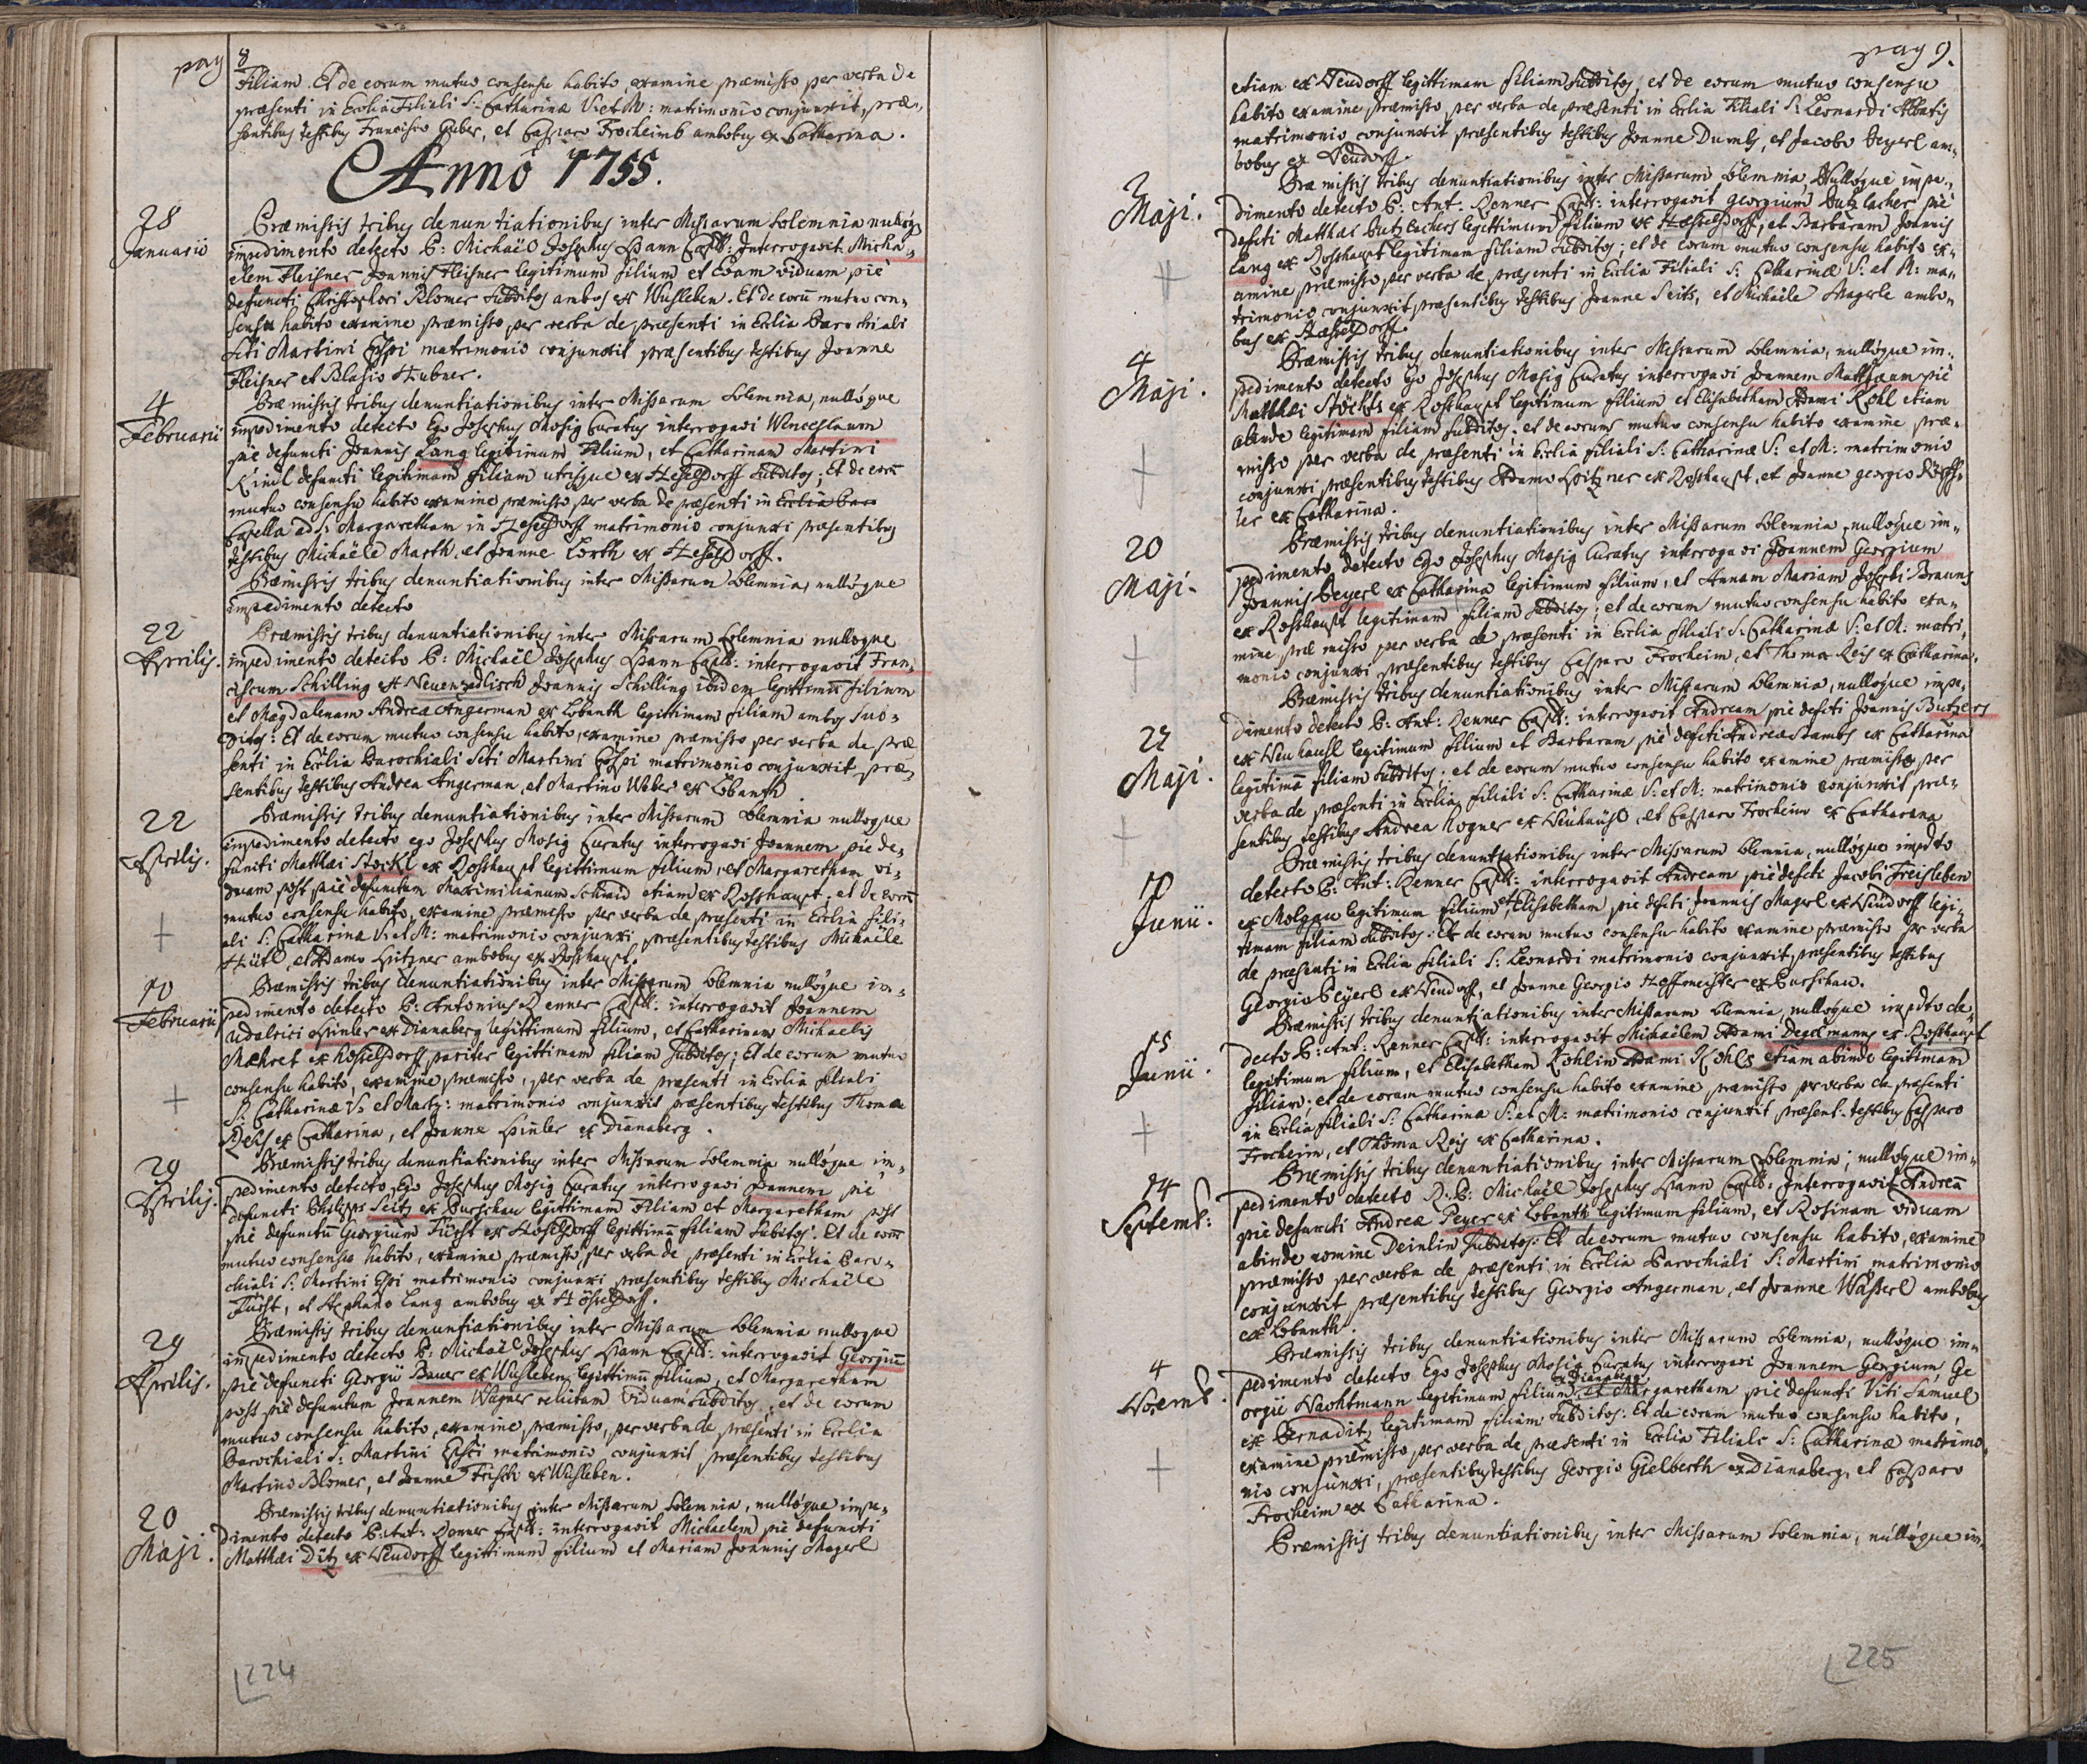 pag 8
Filiam. Et de eorum mutuo consensu habito, examine præmisso per verba de
præsenti in Ecclia Filiali S: Catharinæ V: et M: matrimonio conjunxit, præ„
sentibus testibus Francisco Huber, et Casparo Frocheimb ambobus ex Catharina.
Annô 1755.
28
Januarii
Præmissis tribus denuntiationibus inter Missarum Solemnia nullóq́
impedimento detecto P: Michaël Josephus Hann Capll: Interrogavit Micha„
elem Fleisner Joannis Fleisner legitimum filium et Evam viduam piè
defuncti Christophori Blomer Subditos ambos ex Wusleben. Et de eorū mutuo con„
sensu habito examine præmisso, per verba de præsenti in Ecclia Parochiali
Scti Martini Eppi matrimonio conjunxit præsentibus testibus Joanne
Fleisner et Blasio Hubner.
4
Februarii
Præmissis tribus denuntiationibus inter Missarum Solemnia, nullóque
impedimento detecto Ego Josephus Mosig Curatus interrogavi Wenceslaum
piè defuncti Joannis Lang legitimum Filium, et Catharinam Martini
Kindl defuncti legitimam filiam utrisque ex Hesesdorff Subditos; Et de eorū
mutuo consensu habito examine præmisso per verba de præsenti in Ecclia Par
Capella ad S: Margaretham in Hesesdorff matrimonio conjunxi præsentibus
testibus Michaële Marth, et Joanne Lorth ex Hesesdorff.
Præmissis tribus denuntiationibus inter Missarum Solemnia, nullóque
impedimento detecto
22
Aprilis.
Præmissis tribus denuntiationibus inter Missarum Solemnia nulloque
impedimento detecto P: Michaël Josephus Hann Capll: interrogavit Fran„
ciscum Schilling ex Neuenzedlisch Joannis Schilling ibidem legittimū filium
et Magdalenam Andreæ Angerman ex Lobanth legittimam filiam ambos sub„
ditos: Et de eorum mutuo consensu habito, examine præmisso per verba de præ
senti in Ecclia Parochiali Scti Martini Eppi matrimonio conjunxit præ„
sentibus testibus Andrea Angerman, et Martino Weber ex Lobanth
22
Aprilis.
Præmissis tribus denuntiationibus inter Missarum Solemnia nulloque
impedimento detecto ego Josephus Mosig Curatus interrogavi Joannem piè de„
functi Matthæi Stöckl ex Rosshaupt legittimum filium, et Margaretham vi„
duam, post piè defunctum Maximilianum Schmid etiam ex Rosshaupt, et de eorū
mutuo consensu habito, examine præmisso per verba de præsenti in Ecclia fili„
ali S: Catharinæ V: et M: matrimonio conjunxi præsentibus testibus Michaële
Hütl, et Adamo Spitzner ambobus ex Rosshaupt.
10
Februarii
Præmissis tribus denuntiationibus inter Missarum Solemnia nullóque im„
pedimento detecto P: Antonius Renner Capll: interrogavit Joannem
Udalrici Pinler ex Dianaberg legittimum filium, et Catharinam Michaelis
Mæhret ex Hesesdorff, pariter legittimam filiam Subditos; Et de eorum mutuo
consensu habito, examine præmisso, per verba de præsenti in Ecclia filiali
S: Catharinæ V: et Marty: matrimonio conjunxit præsentibus testibus Thoma
Reis ex Catharina, et Joanne Pinler ex Dianaberg.
29
Aprilis.
Præmissis tribus denuntiationibus inter Missarum Solemnia nullóque im„
pedimento detecto, Ego Josephus Mosig Curatus interrogavi Joannem piè
defuncti Philippi Seitz ex Purschau legittimum Filium et Margaretham post
piè defunctū Georgium Fürst ex Hesesdorff legittimā filiam Subditos. Et de eorū
mutuo consensu habito, examine præmisso per verba de præsenti in Ecclia Paro„
chiali S: Martini Eppi matrimonio conjunxi præsentibus testibus Michaële
Fürst, et Stephano Lang ambobus ex Hösesdorff.
29
Aprilis.
Præmissis tribus denuntiationibus inter Missarum Solemnia nulloque
impedimento detecto P: Michaël Josephus Hann Capll: interrogavit Georgiū
piè defuncti Georgii Bauer ex Wusleben legittimū filium, et Margaretham
post piè defunctum Joannem Wagner relictam viduam Subditos, et de eorum
mutuo consensu habito, examine præmisso, per verba de præsenti in Ecclia
Parochiali S: Martini Eppi matrimonio conjunxit præsentibus testibus
Martino Blomer, et Joanne Frisch ex Wusleben.
20
Maji.
Præmissis tribus denuntiationibus inter Missarum Solemnia, nullóque impe„
dimento detecto P: Ant: Renner Capll: interrogavit Michaelem piè defuncti
Matthæi Ditz ex Neudorff legittimum filium et Mariam Joannis Magerl
224
pag 9.
etiam ex Neudorff legittimam filiam Subditos, et de eorum mutuo consensu
habito examine præmisso, per verba de præsenti in Ecclia Filiali S: Leonardi Abbatis
matrimonio conjunxit præsentibus testibus Joanne Dumbs, et Jacobo Beyerl am„
bobus ex Neudorff.
2
Maji.
Præmissis tribus denuntiationibus inter Missarum Solemnia, Nullóque impe„
dimento detecto P: Ant: Renner Capll: interrogavit Georgium Butzlacher piè
defcti Matthæi Butzlachers legittimum filium ex Hesesdorff, et Barbaram Joannis
Lang ex Rosshaupt legitimam filiam Subditos; et de eorum mutuo consensu habito ex„
amine præmisso per verba de præsenti in Ecclia Filiali S: Catharinæ V: et M: ma„
trimonio conjunxit præsentibus testibus Joanne Seits, et Michaële Magerle ambo„
bus ex Hæsesdorff.
4
Maji.
Præmissis tribus denuntiationibus inter Missarum Solemnia, nullóque im„
pedimento detecto Ego Josephus Mosig Curatus interrogavi Joannem Matthæum piè
Matthæi Stöckls ex Rosshaupt legitimum filium et Elisabetham Adami Kohl etiam
abinde legitimam filiam subditos. et de eorum mutuo consensu habito examine præ„
misso per verba de præsenti in Ecclia filiali S: Catharinæ V: et M: matrimonio
conjunxi præsentibus testibus Adamo Spitzner ex Rosshaupt, et Joanne Georgio
ler ex Catharina.
20
Maji.
Præmissis tribus denuntiationibus inter Missarum Solemnia, nullóque im„
pedimento detecto Ego Josephus Mosig Curatus interrogavi Joannem Georgium
Joannis Beyerl ex Catharina legitimum filium, et Annam Mariam Josephi Brauns
ex Rosshaupt legitimam filiam Subditos; et de eorum mutuo consensu habito exa„
mine præmisso per verba de præsenti in Ecclia filiali S: Catharinæ V: et M: matri„
monio conjunxi præsentibus testibus Casparo Frocheim, et Thoma Reis ex Catharina.
27
Maji.
Præmissis tribus denuntiationibus inter Missarum Solemnia, nullóque impe„
dimento detecto P: Ant: Renner Capll: interrogavit Andream piè defcti Joannis Butzers
ex Neuhausl legitimum filium et Barbaram piè defcti Andreæ Stambs ex Catharina
legitimā filiam Subditos; et de eorum mutuo consensu habito examine præmisso per
verba de præsenti in Ecclia filiali S: Catharinæ V: et M: matrimonio conjunxit præ„
sentibus testibus Andrea Kogner ex Neuhäusl, et Casparo Frocheim ex Catharina
10
Junii.
Præmissis tribus denuntiationibus inter Missarum Solemnia, nullóque impdto
detecto P: Ant: Renner Capll: interrogavit Andream piè defcti Jacobi Freisleben
ex Molgau legitimum filium, et Elisabetham piè defcti Joannis Magerl ex Neudorff legi„
timam filiam Subditos: Et de eorum mutuo consensu habito examine præmisso per verba
de præsenti in Ecclia filiali S: Leonardi matrimonio conjunxit, præsentibus testibus
Georgio Beyerl ex Neudorff, et Joanne Georgio Hoffmeister ex Purschau.
15
Junii.
Præmissis tribus denuntiationibus inter Missarum Solemnia, nullóque impdto de„
tecto P: Ant: Renner Capll: interrogavit Michaëlem Adami Degelmanns ex Rosshaupt
legitimum filium, et Elisabetham Kohlin Adami Kohls etiam abinde legitimam
filiam; et de eorum mutuo consensu habito examine præmisso per verba de præsenti
in Ecclia filiali S: Catharinæ V: et M: matrimonio conjunxit, præsent: testibus Casparo
Frocheim, et Thoma Reis ex Catharina.
14
Septemb:
Præmissis tribus denuntiationibus inter Missarum Solemnia; nullóque im„
pedimento detecto R: P: Michaël Josephus Hann Capll: Interrogavit Andreā
piè defuncti Andreæ Peyer ex Lobanth legitimum filium, et Rosinam viduam
abinde nomine Deinlin Subditos: Et de eorum mutuo consensu habito, examine
præmisso per verba de præsenti in Ecclia Parochiali S: Martini matrimonio
conjunxit præsentibus testibus Georgio Angerman, et Joanne Wässerl ambobus
ex Lobanth.
4
Novemb.
Præmissis tribus denuntiationibus inter Missarum Solemnia, nullóque im„
pedimento detecto Ego Josephus Mosig Curatus interrogavi Joannem Georgium, Ge
ex Dianaberg
orgii Wachtmann legitimum filium, et Margaretham piè defuncti Viti Samuel
ex Bernadit, legitimam filiam Subditos: Et de eorum mutuo consensu habito,
examine præmisso, per verba de præsenti in Ecclia Filiali S: Catharinæ matrimo„
nio conjunxi, præsentibus testibus Georgio Gielberth ex Dianaberg, et Casparo
Frocheim ex Catharina.
Præmissis tribus denuntiationibus inter Missarum Solemnia, nullóque im„
225